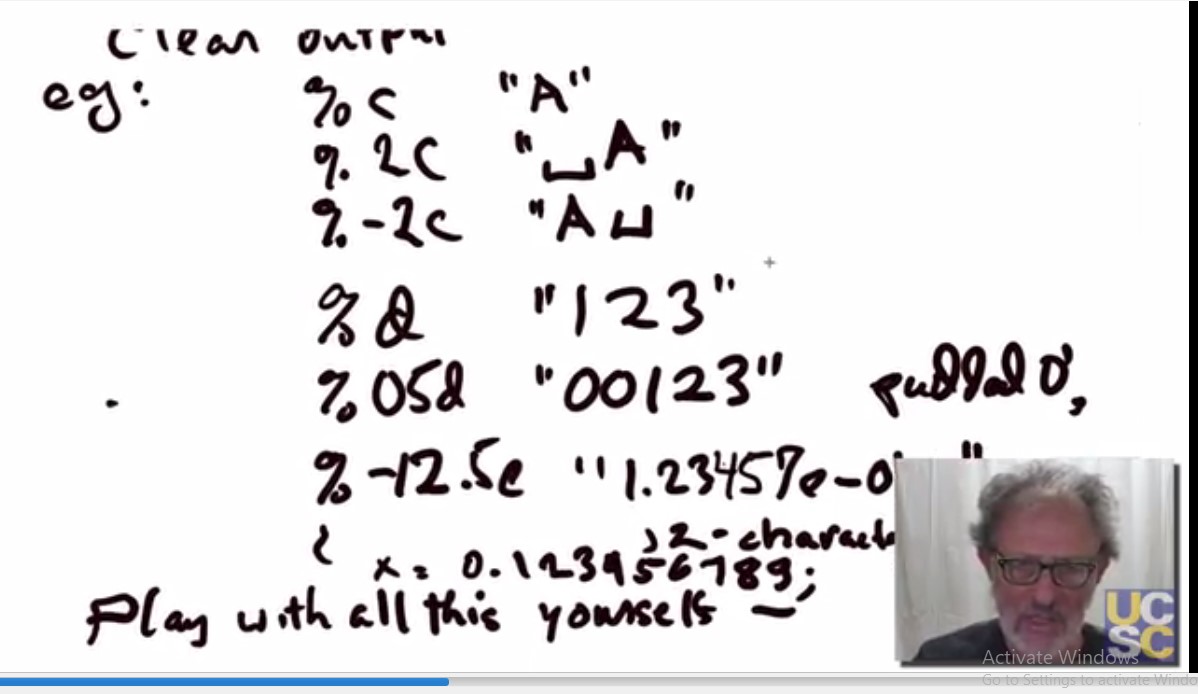 Clean output
eg:
%c "A"
%2c "␣A"
%-2c "A␣"
%d "123"
%05d "00123" padded 0,
%-12.5e "1.23457e-0 "
( 12-characte
x = 0.123456789;
Play with all this yourself —
UC
SC
Activate Windows
Go to Settings to activate Windo